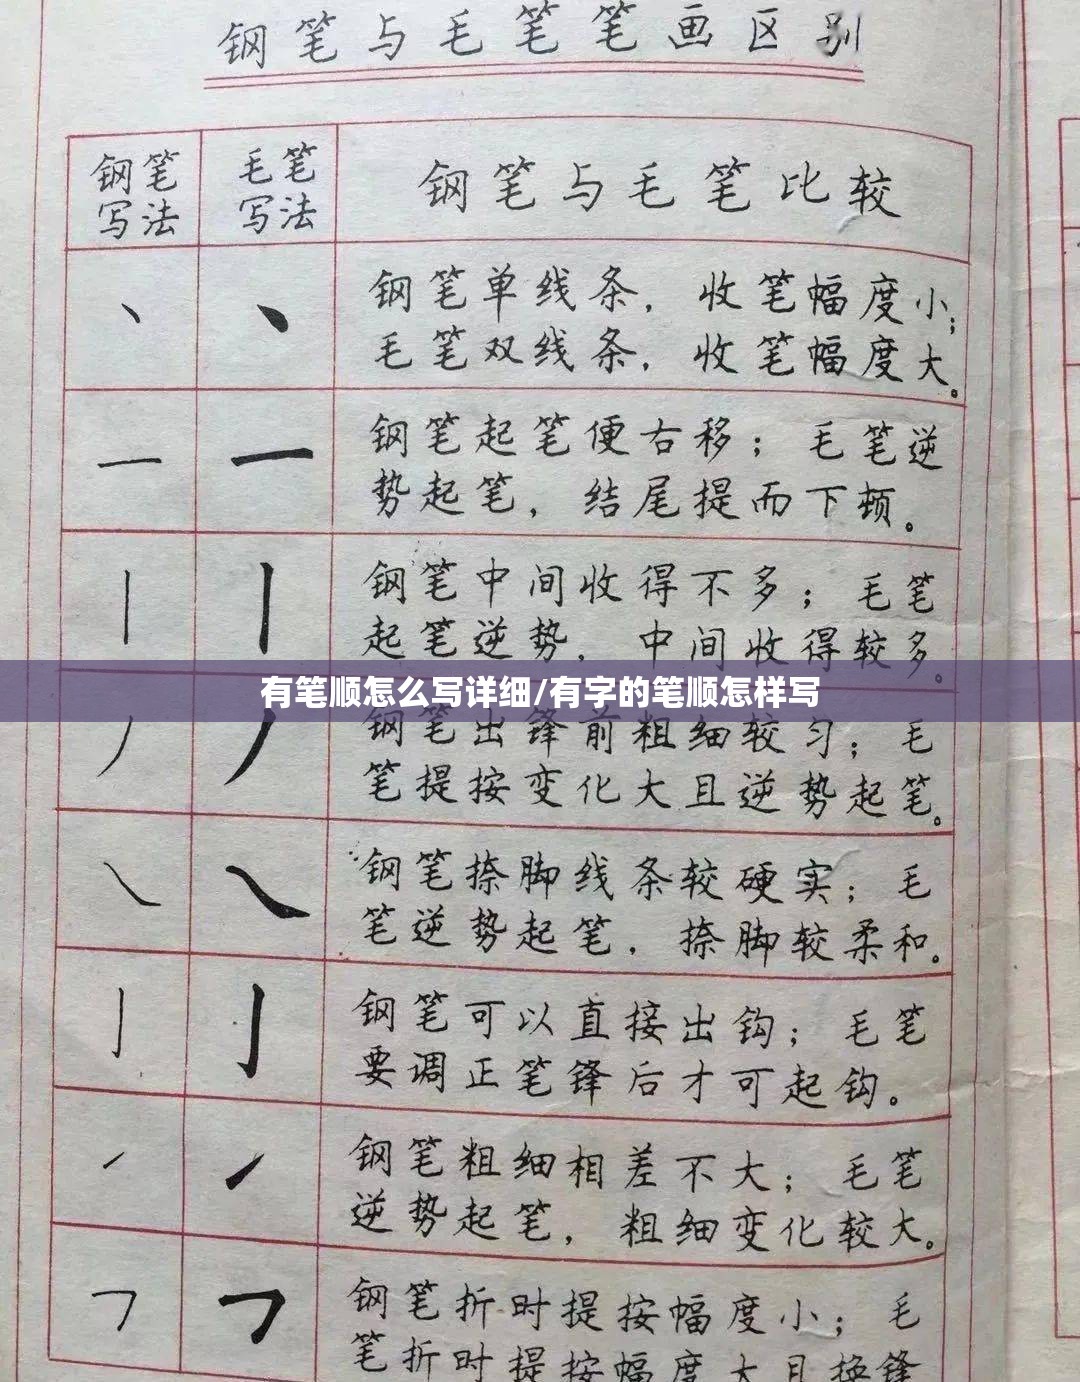 钢笔与毛笔笔画区别
钢笔写法
毛笔写法
钢笔与毛笔比较
钢笔单线条，收笔幅度小；
毛笔双线条，收笔幅度大。
钢笔起笔便右移；毛笔逆
势起笔，结尾提而下顿。
钢笔中间收得不多；毛笔
起笔逆势，中间收得较多。
有笔顺怎么写详细/有字的笔顺怎样写
钢笔出锋前粗细较匀；毛
笔提按变化大且逆势起笔。
钢笔捺脚线条较硬实；毛
笔逆势起笔，捺脚较柔和。
钢笔可以直接出钩；毛笔
要调正笔锋后才可起钩。
钢笔粗细相差不大；毛笔
逆势起笔，粗细变化较大。
钢笔折时提按幅度小；毛
笔折时提按幅度大且换锋